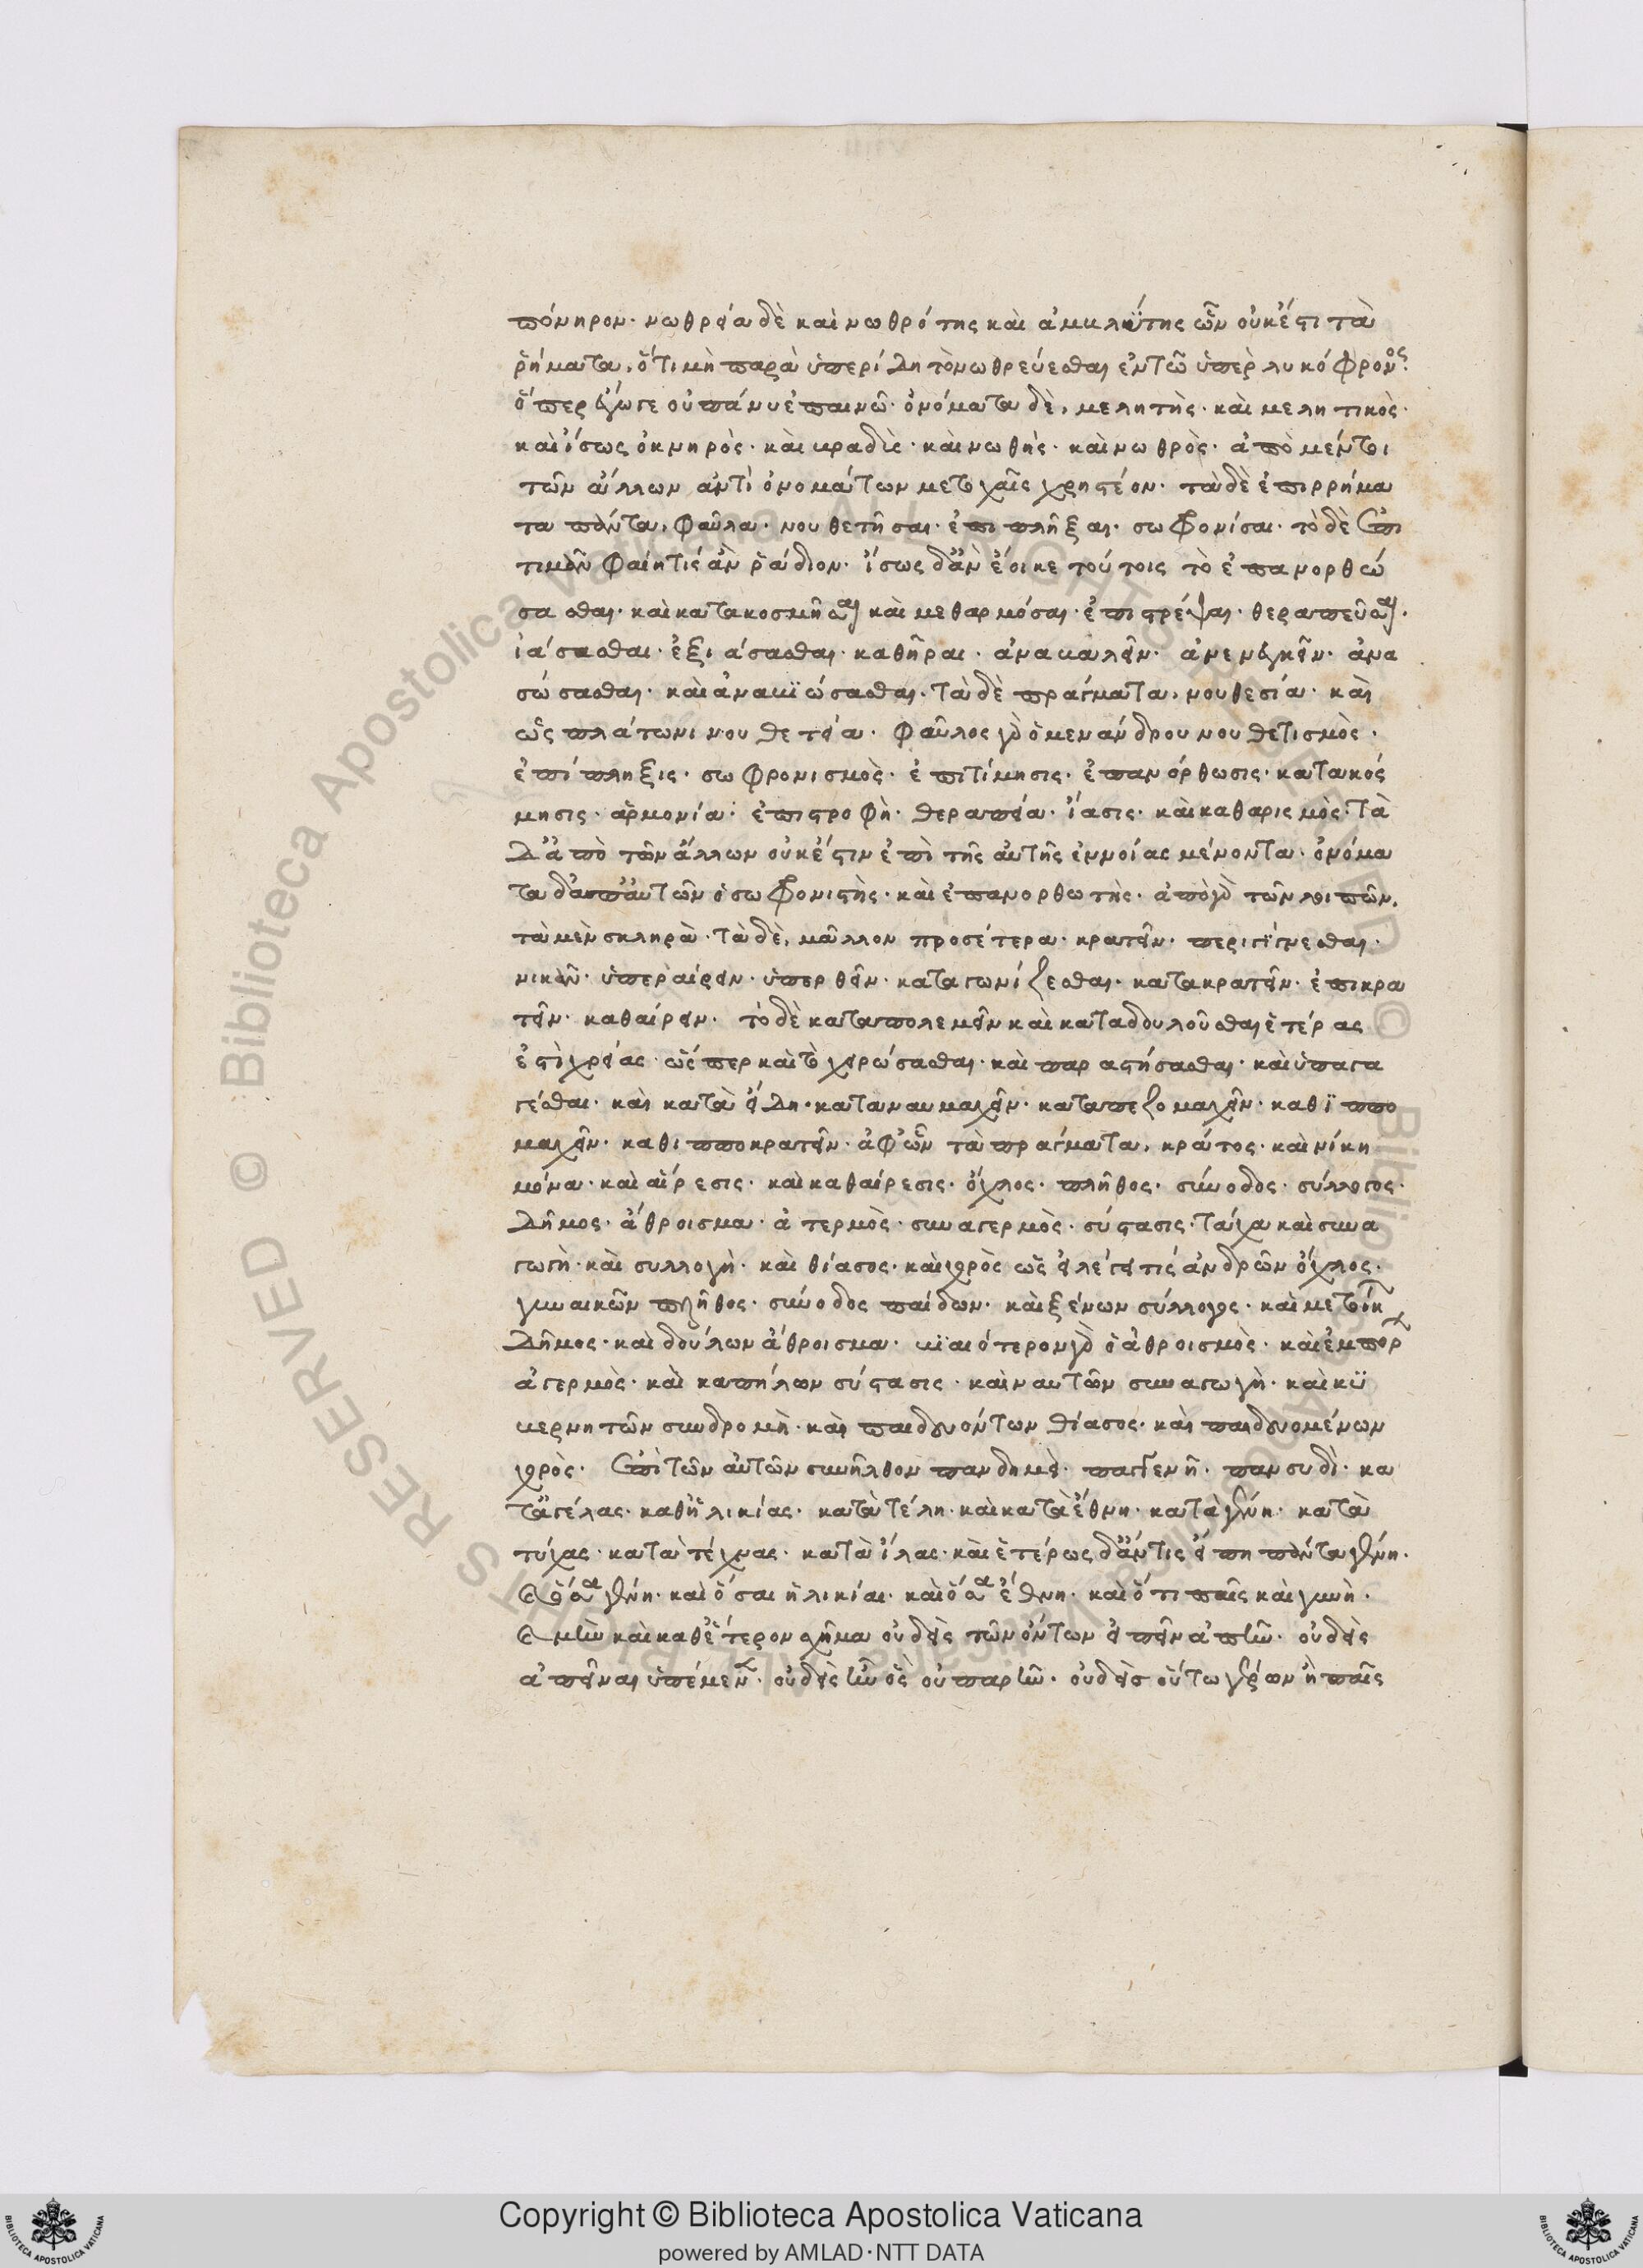 πόνηρον· νωθρεία δὲ καὶ νωθρότης καὶ ἀμβλύτης ὧν οὐκ ἔστι τὰ
ῥήματα, ὅτι μὴ παρὰ ὑπερίδη τὸ νωθρεύεσθαι ἐν τῶ ὑπὲρ λυκόφρονος·
ὅπερ ἔγωγε οὐ πάνυ ἐπαινῶ· ὀνόματα δὲ, μελητὴς· καὶ μελητικὸς·
καὶ ἴσως ὀκνηρὸς· καὶ βραδὺς· καὶ νωθής· καὶ νωθρὸς· ἀπὸ μέντοι
τῶν ἄλλων ἀντὶ ὀνομάτων μετοχαῖς χρηστέον· τὰ δὲ ἐπιρρήμα
τα πάντα, φαῦλα· νουθετῆσαι· ἐπιπλῆξαι· σωφρονίσαι· τὸ δὲ ἐπι
τιμᾶν φαίη τίς ἂν ῥάδιον· ἴσως δ' ἂν ἔοικε τούτοις τὸ ἐπανορθώ
σασθαι· καὶ κατακοσμῆσαι καὶ μεθαρμόσαι· ἐπιστρέψαι· θεραπεῦσαι·
ἰάσασθαι· ἐξιάσασθαι· καθῆραι· ἀνακαλεῖν· ἀνενεγκεῖν· ἀνα
σώσασθαι· καὶ ἀναβιώσασθαι· τὰ δὲ πράγματα, νουθεσία· καὶ
ὡς πλάτωνι νουθετεία· φαῦλος γὰρ ὁ μενάνδρου νουθετισμὸς·
ἐπίπληξις· σωφρονισμὸς· ἐπιτίμησις· ἐπανόρθωσις· κατακός
μησις· ἁρμονία· ἐπιστροφὴ· θεραπεία· ἴασις· καὶ καθαρισμὸς· τὰ
δ' ἀπὸ τῶν ἄλλων οὐκ ἔστιν ἐπὶ τῆς αὐτῆς ἐννοίας μένοντα· ὀνόμα
τα δ' ἀπ' αὐτῶν ὁ σωφρονιστὴς· καὶ ἐπανορθωτὴς· ἀπὸ γὰρ τῶν λοιπῶν,
τὰ μὲν σκληρὰ· τὰ δὲ, μᾶλλον προσέτερα· κρατεῖν· περιγίγνεσθαι·
νικᾶν· ὑπεραίρειν· ὑπερθεῖν· καταγωνίζεσθαι· κατακρατεῖν· ἐπικρα
τεῖν· καθαίρειν· τὸ δὲ καταπολεμεῖν καὶ καταδουλοῦσθαι ἑτέρας
ἐστὶ χρείας· ὥσπερ καὶ τὸ χειρώσασθαι· καὶ παραστήσασθαι· καὶ ὑπαγα
γέσθαι· καὶ κατὰ εἴδη· καταναυμαχεῖν· καταπεζομαχεῖν· καθιππο
μαχεῖν· καθιπποκρατεῖν· ἀφ' ὧν τὰ πράγματα, κράτος· καὶ νίκη
μόνα· καὶ αἵρεσις· καὶ καθαίρεσις· ὄχλος· πλῆθος· σύνοδος· σύλλογος·
δῆμος· ἄθροισμα· ἀγερμὸς· συναγερμὸς· σύστασις· τάχα καὶ συνα
γωγὴ· καὶ συλλογὴ· καὶ θίασος· καὶ χορὸς ὡς εἰ λέγει τίς ἀνδρῶν ὄχλος·
γυναικῶν πλῆθος· σύνοδος παίδων· καὶ ξένων σύλλογος· καὶ μετοίκων
δῆμος· καὶ δούλων ἄθροισμα· βιαιότερον γὰρ ὁ ἀθροισμὸς· καὶ ἐμπόρων
ἀγερμὸς· καὶ καπήλων σύστασις· καὶ ναυτῶν συναγωγὴ· καὶ κυ
βερνητῶν συνδρομὴ· καὶ παιδευόντων θίασος· καὶ παιδευομένων
χορὸς· ἐπὶ τῶν αὐτῶν συνῆλθον πανδημεὶ· παγγενῆ· πανσυδὶ· κα
τ' ἀγέλας· καθ' ἡλικίας· κατὰ τέλη· καὶ κατὰ ἔθνη· κατὰ γένη· κατὰ
τύχας· κατὰ τέχνας· κατὰ ἴλας· καὶ ἑτέρως δ' ἄν τις εἴπη πάντα γένη·
καὶ ὅσα γένη· καὶ ὅσαι ἡλικίαι· καὶ ὅσα ἔθνη· καὶ ὅτι παῖς καὶ γυνὴ·
καὶ μὴν καὶ καθ' ἕτερον σχῆμα οὐδεὶς τῶν ὄντων εἰπεῖν ἀπῆν· οὐδεὶς
ἀπεῖναι ὑπέμεινεν· οὐδεὶς ἦν ὃς οὐ παρῆν· οὐδεὶς οὕτω γέρων ἢ παῖς